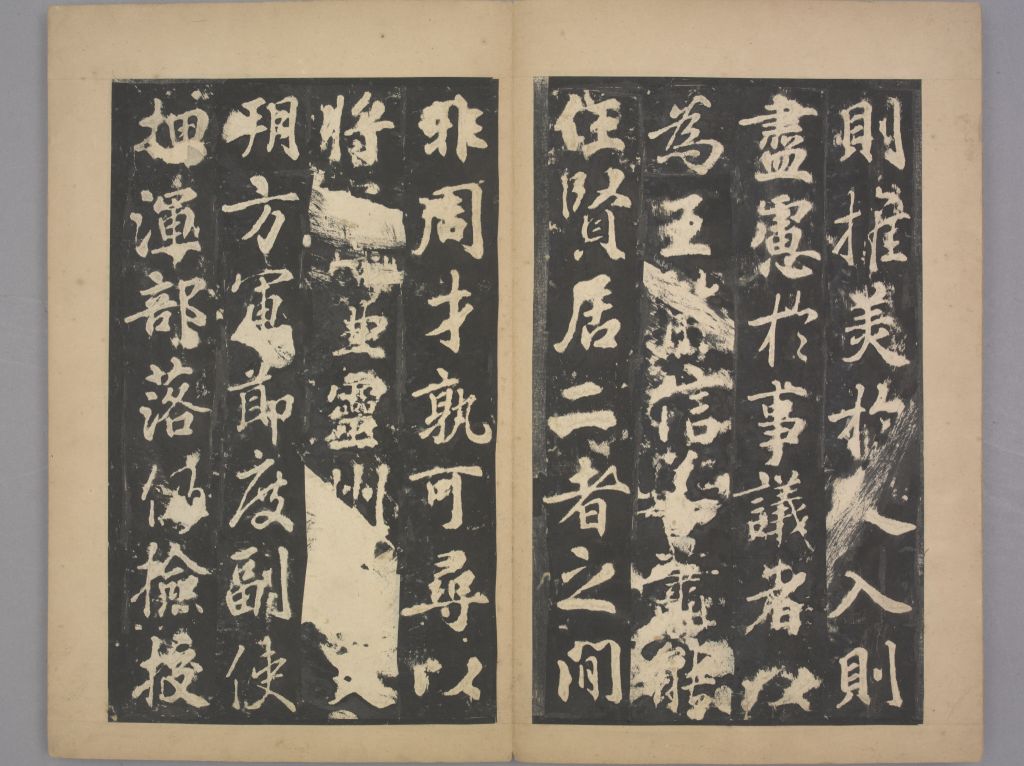 則推美於人入則
盡慮於事議者以
為王信能
任賢居二者之間
非周才孰可尋以
將靈州
朔方軍節度副使
押渾部落仍檢校